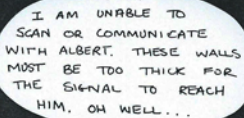 I AM UNABLE TO
SCAN OR COMMUNICATE
WITH ALBERT. THESE WALLS
MUST BE TOO THICK FOR
THE SIGNAL TO REACH
HIM. OH WELL...